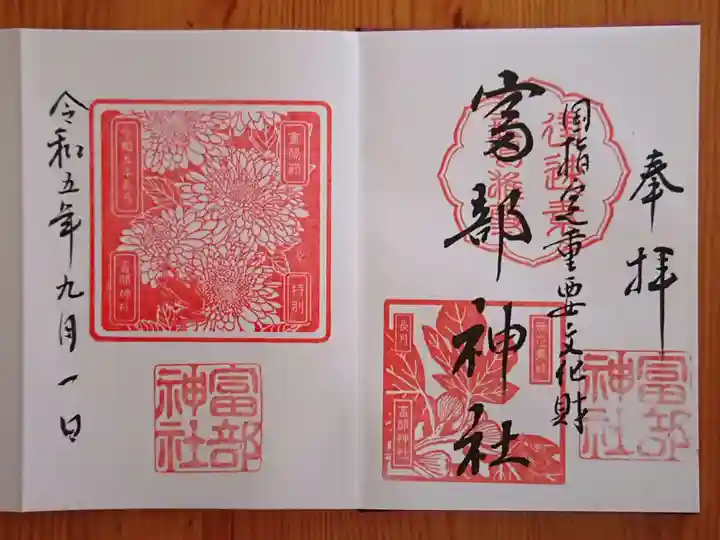 奉拝
国指定重要文化財
富部神社
富部神社
長月
富部神社
令和五年九月一日
重陽節
特別
富部神社
富部神社